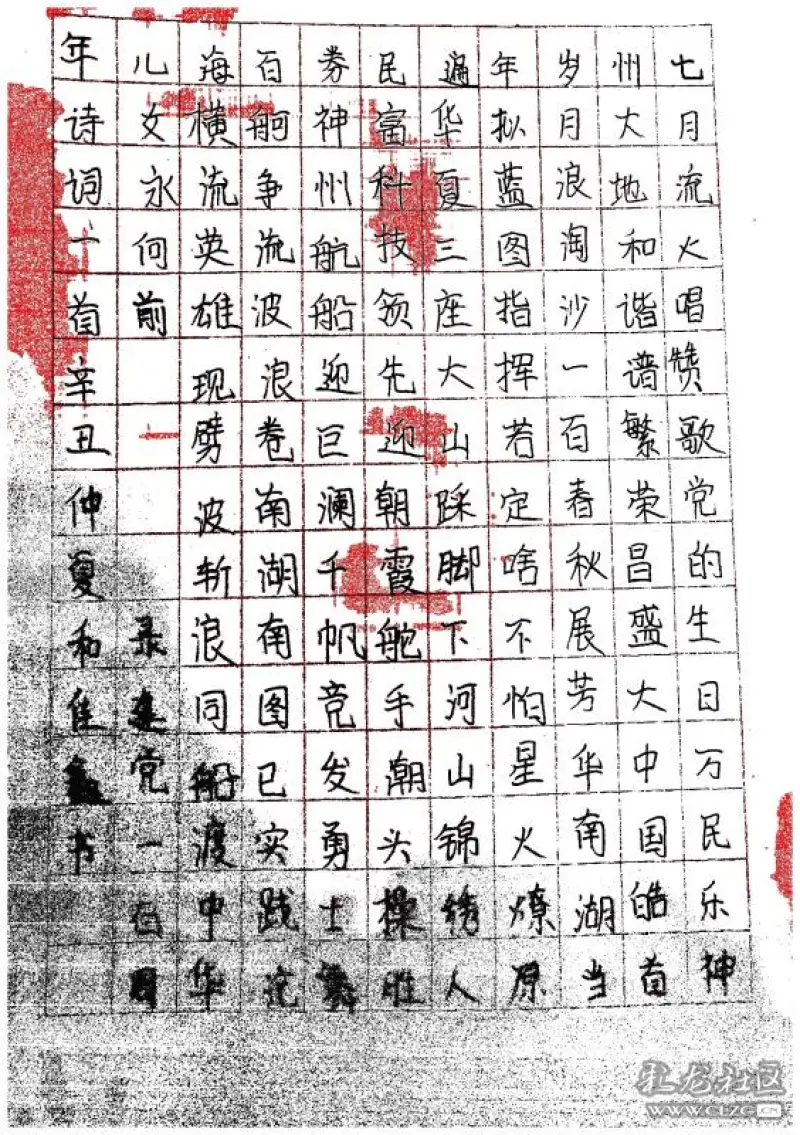 七月流火唱赞歌党的生日万民乐神
州大地和谐谱繁荣昌盛大中国皓首
岁月浪淘沙一百春秋展芳华南湖当
年拟蓝图指挥若定啥不怕星火燎原
遍华夏三座大山踩脚下河山锦绣人
民富科技领先迎朝霞舵手潮头操胜
券神州航船迎巨澜千帆竞发勇士
百舸争流波浪卷南湖南图已实践沧
海横流英雄现劈波斩浪同船渡中华
儿女永何前 录建党一百周
年诗词一首辛丑仲夏和佳书
红龙社区
WWW.CLZG.CN